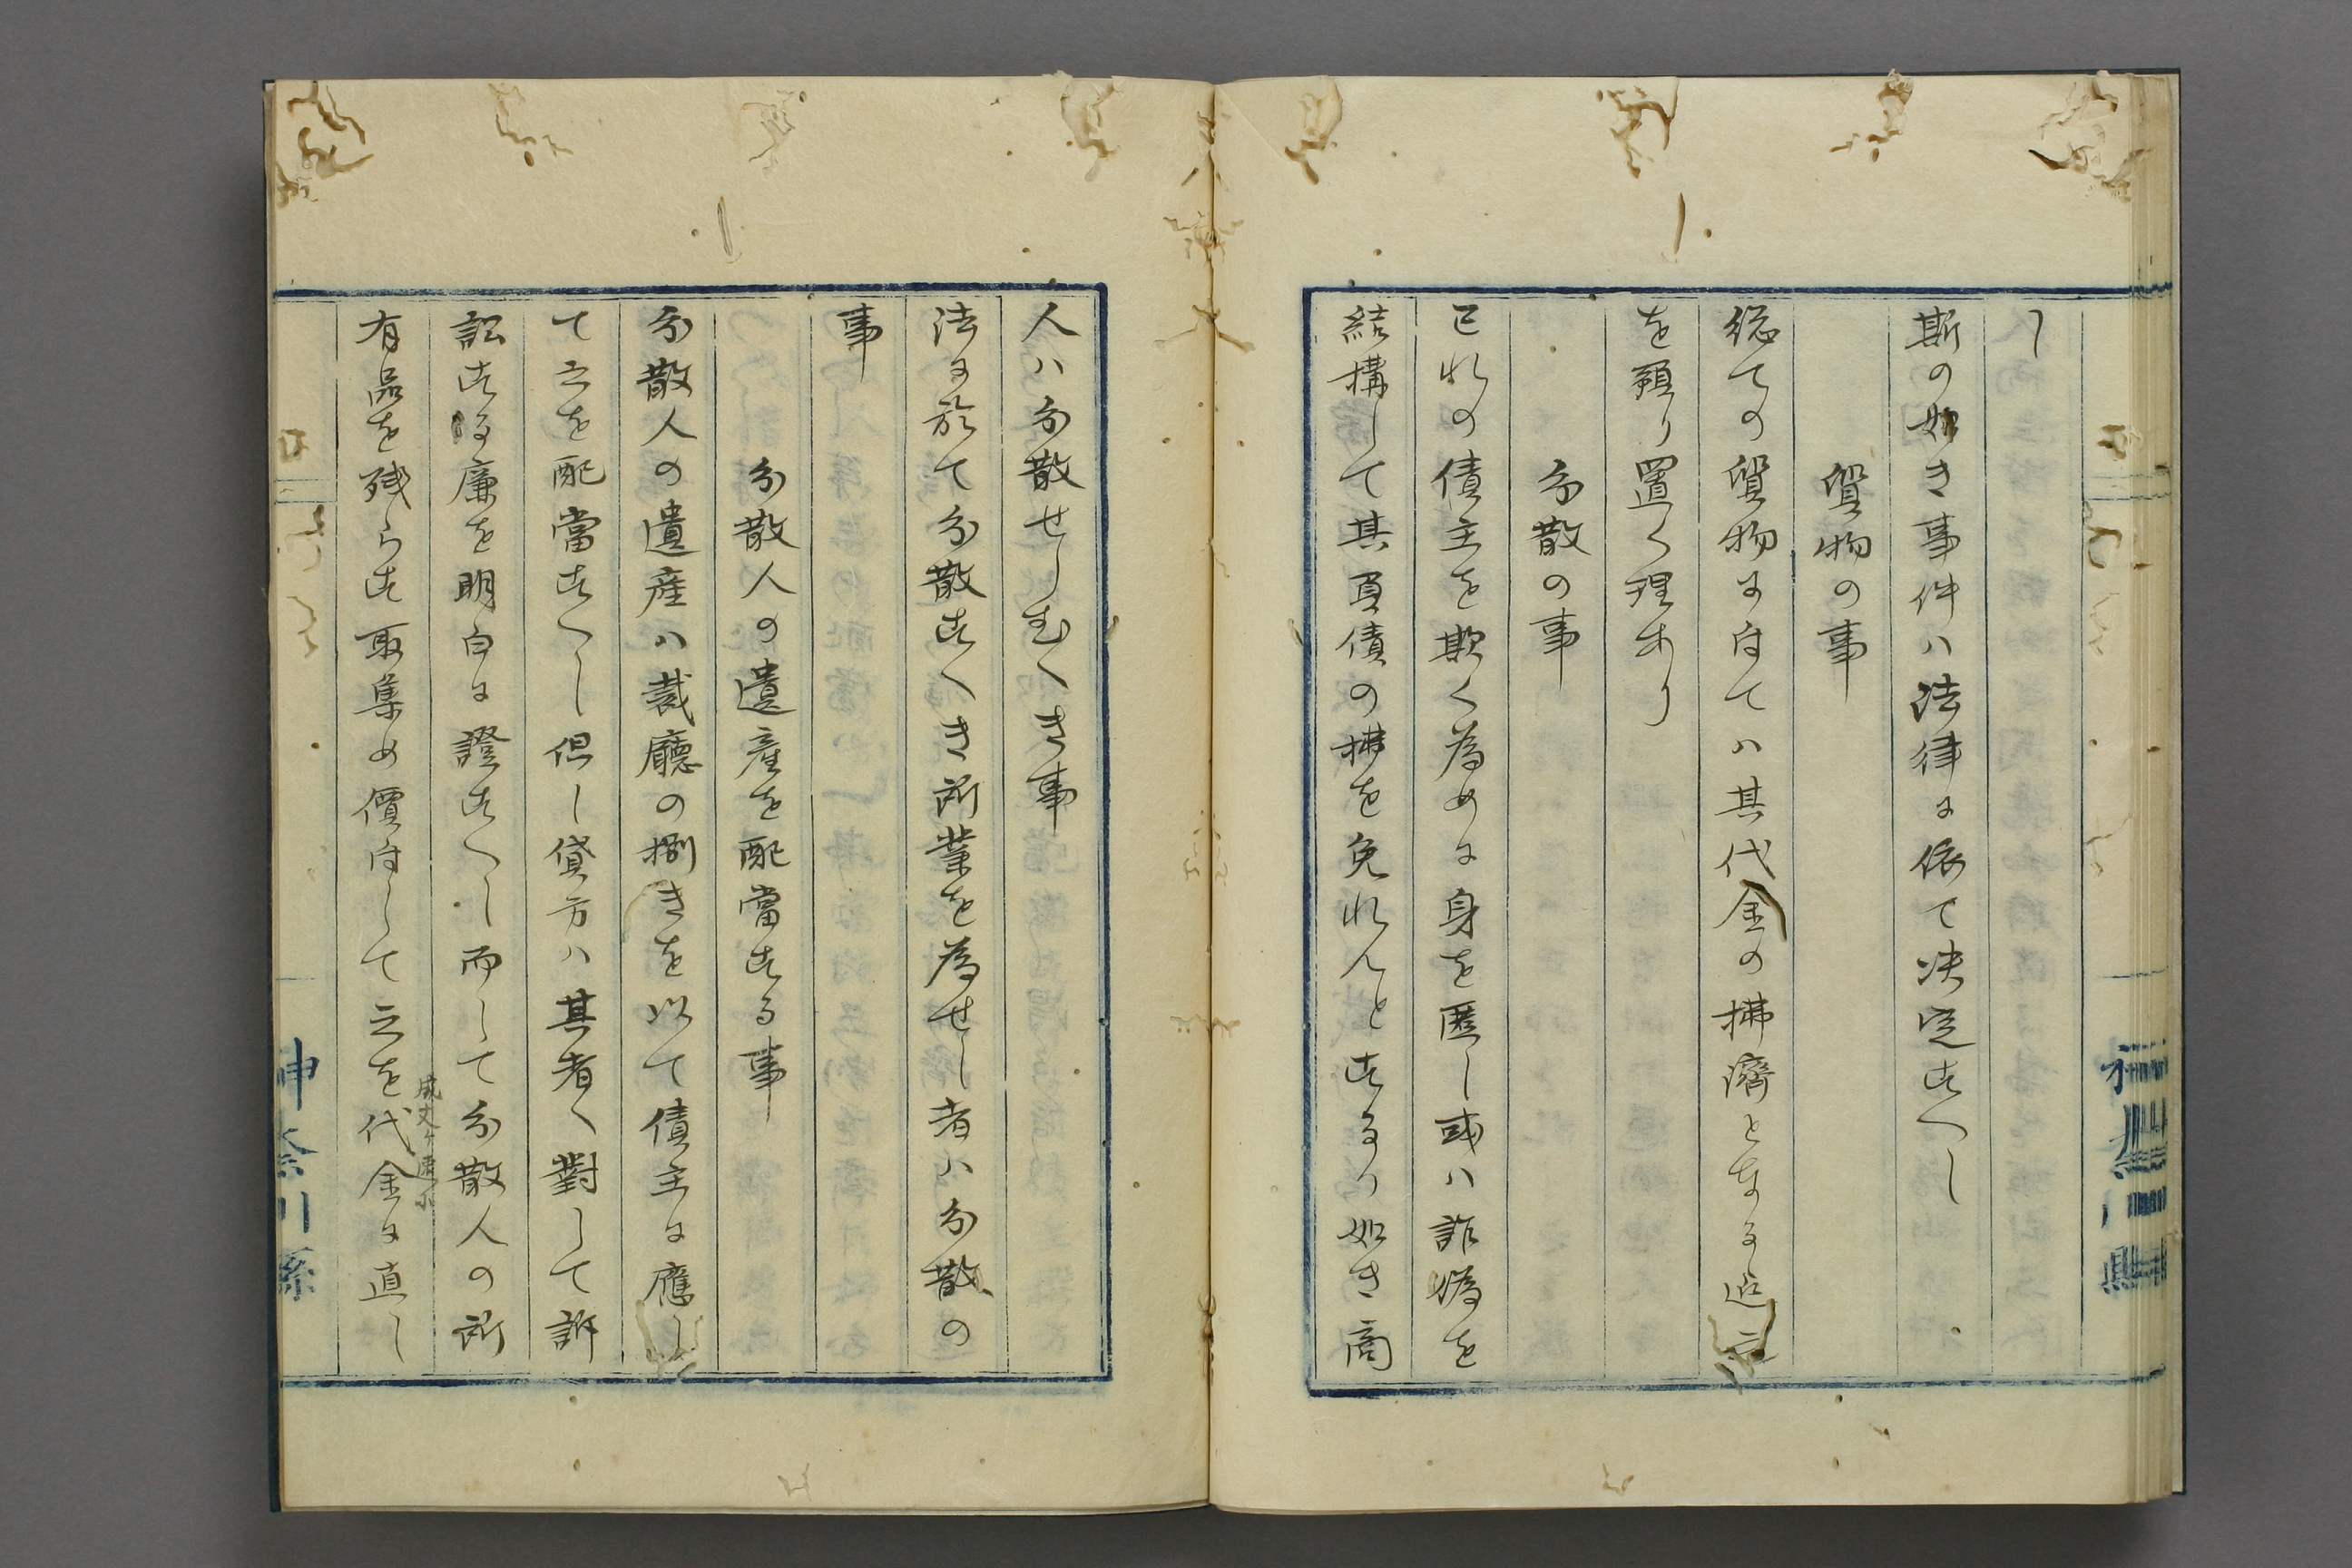 し
斯の如き事件ハ法律に依て决定すへし
質物の事
総ての質物に付てハ其代金の拂済となる迠之
を預り置く理あり
分散の事
己れの債主を欺く為めに身を匿し或ハ詐偽を
結構して其負債の拂を免れんとするか如き商
人ハ分散せしむへき事
法に於て分散すへき所業を為せし者ハ分散の
事
分散人の遺産を配當する事
分散人の遺産ハ裁廳の捌きを以て債主に應し
て之を配當すへし但し貸方ハ其者へ對して訴
訟する廉を明白に證すへし而して分散人の所
有品を残らす取集め價付して之を代金に直し
成丈ケ
神奈川縣